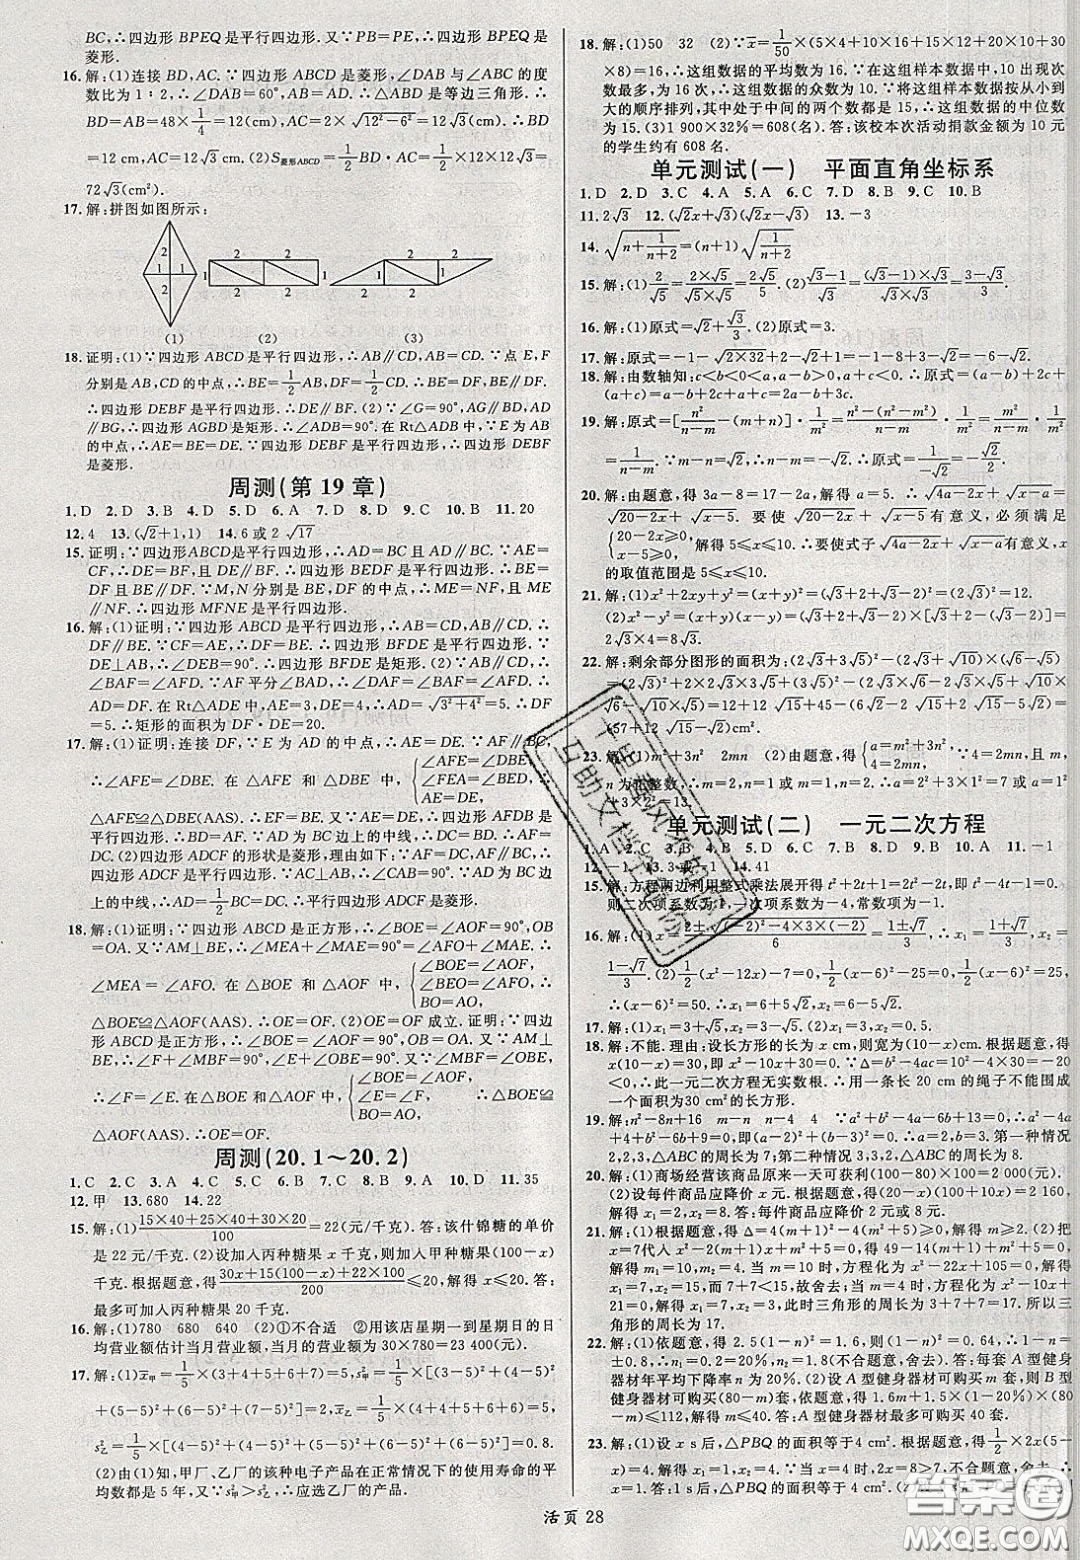 BC,∴四边形 BPEQ 是平行四边形.又∵PB=PE,∴四边形 BPEQ 是
菱形.
16.解:(1)连接 BD,AC.∵四边形 ABCD 是菱形,∠DAB 与∠ABC 的度
数比为 1∶2,∴∠DAB=60°,AB=AD.∴△ABD 是等边三角形.∴
BD=AB=48×1/4=12(cm),AC=2×√(12²-6²)=12√3(cm).∴
BD=12 cm,AC=12√3 cm.(2)S菱形ABCD=1/2BD·AC=1/2×12×12√3=
72√3(cm²).
17.解:拼图如图所示:
2 1 1 2
2 2 1 1 2 2
2 1 1 2
(1) (2) (3)
18.证明:(1)∵四边形 ABCD 是平行四边形,∴AB=CD.∵点 E,F
分别是 AB,CD 的中点,∴BE=1/2AB,DF=1/2CD.∴BE=DF.∴
四边形 DEBF 是平行四边形.∴DE∥BF.(2)∵∠G=90°,AG∥BD,AD
∥BG,∴四边形 AGBD 是矩形.∴∠ADB=90°.在 Rt△ADB 中,∵E 为 AB
的中点,∴AE=BE=DE.∵四边形 DEBF 是平行四边形,∴四边形 DEBF
是菱形.
周测(第 19 章)
1.D 2.D 3.B 4.D 5.D 6.A 7.D 8.B 9.C 10.B 11.20
12.4 13.(√2+1,1) 14.6 或 2√17
15.证明:∵四边形ABCD是平行四边形,∴AD=BC 且 AD∥BC.∵AE=
CF,∴DF=BE,且 DF∥BE.∴四边形 BEDF 是平行四边形.∴
DE=BF,且 DE∥BF.∵M,N 分别是 DE,BF 的中点,∴ME=NF,且 ME
∥NF.∴四边形 MFNE 是平行四边形.
16.解:(1)证明:∵四边形 ABCD 是平行四边形,∴AB=CD,AB∥CD,即
DF∥BE.∵CF=AE,∴DF=BE.∴四边形 BFDE 是平行四边形.∵
DE⊥AB,∴∠DEB=90°.∴四边形 BFDE 是矩形.(2)∵AB∥CD,∴
∠BAF=∠AFD.∵AF 平分∠BAD,∴∠DAF=∠BAF=∠AFD.∴
AD=DF.在 Rt△ADE 中,AE=3,DE=4,∴AD=√(3²+4²)=5.∴DF
=5.∴矩形的面积为 DF·DE=20.
17.解:(1)证明:连接 DF,∵E 为 AD 的中点,∴AE=DE.∵AF∥BC,
∴∠AFE=∠DBE.在 △AFE 和 △DBE 中,{∠AFE=∠DBE, ∠FEA=∠BED, AE=DE, ∴
△AFE≌△DBE(AAS).∴EF=BE.∵AE=DE,∴四边形 AFDB 是平行四
边形.∴BD=AF.∵AD 为 BC 边上的中线,∴DC=BD.∴AF=DC.
(2)四边形 ADCF 的形状是菱形,理由如下:∵AF=DC,AF∥BC,∴四
边形 ADCF 是平行四边形.∵AC⊥AB,∴∠CAB=90°.∵AD 为 BC 边
上的中线,∴AD=1/2BC=DC.∴平行四边形 ADCF 是菱形.
18.解:(1)证明:∵四边形 ABCD 是正方形,∴∠BOE=∠AOF=90°,OB
=OA.又∵AM⊥BE,∴∠MEA+∠MAE=90°=∠AFO+∠MAE.∴
∠MEA=∠AFO.在 △BOE 和 △AOF 中,{∠BOE=∠AOF, ∠BEO=∠AFO, BO=AO, ∴
△BOE≌△AOF(AAS).∴OE=OF.(2)OE=OF 成立.证明:∵四边
形 ABCD 是正方形,∴∠BOE=∠AOF=90°,OB=OA.又∵AM⊥BE,
∴∠F+∠MBF=90°,∠E+∠OBE=90°.又∵∠MBF=∠OBE,
∴∠F=∠E.在 △BOE 和 △AOF 中,{∠BOE=∠AOF, ∠E=∠F, BO=AO, ∴△BOE≌
△AOF(AAS).∴OE=OF.
周测(20.1～20.2)
1.C 2.C 3.A 4.C 5.C 6.B 7.B 8.C 9.A 10.D 11.35
12.甲 13.680 14.22
15.解:(1)(15×40+25×40+30×20)/100=22(元/千克).答:该什锦糖的单价
是 22 元/千克.(2)设加入丙种糖果 x 千克,则加入甲种糖果(100-x)
千克.根据题意,得(30x+15(100-x)+22×100)/200≤20,解得 x≤20.答:
最多可加入丙种糖果 20 千克.
16.解:(1)780 680 640 (2)①不合适 ②用该店星期一到星期日的日
均营业额估计当月营业额,当月的营业额为 30×780=23 400(元).
17.解:(1)x̄甲=1/5×(4+5+5+5+6)=5,s²甲=1/5×[(4-5)²+(5-5)²
+(5-5)²+(5-5)²+(6-5)²]=0.4,x̄乙=1/5×(4+5+5+5+6)=5,
s²乙=1/5×[(4-5)²+(5-5)²+(4-5)²+(6-5)²+(6-5)²]=0.8.
(2)由(1)知,甲厂、乙厂的该种电子产品在正常情况下的使用寿命的平
均数都是 5 年,又∵s²甲>s²乙,∴应选乙厂的产品.
18.解:(1)50 32 (2)∵x̄=1/50×(5×4+10×16+15×12+20×10+30
×8)=16,∴这组数据的平均数为 16.∵在这组样本数据中,10 出现次
数最多,为 16 次,∴这组数据的众数为 10.∵将这组样本数据按从小到
大的顺序排列,其中处于中间的两个数都是 15,∴这组数据的中位数
为 15.(3)1 900×32%=608(名).答:该校本次活动捐款金额为 10 元
的学生约有 608 名.
单元测试(一) 平面直角坐标系
1.D 2.D 3.C 4.A 5.A 6.C 7.D 8.B 9.C 10.B
11.2√3 12.(√2x+√3)(√2x-√3) 13.-3
14.√(n+1/(n+2))=(n+1)√(1/(n+2))
15.解:(1)2/√5=(2×√5)/(√5×√5)=2√5/5.(2)(√3-1)/√3=((√3-1)×√3)/(√3×√3)=(3-√3)/3.
16.解:(1)原式=√2+√3/3.(2)原式=6.
18.解:由数轴知:c<b<0<a,∴a-b>0,a+c<0.∴原式=(a-b)+2c+
(a+c)=a-b+2c+a+c=2a-b+3c.
20.解:由题意,得 3a-8=17-2a,解得 a=5. ∴√(4a-2x)+√(x-a)=
√(20-2x)+√(x-5).要使 √(20-2x)+√(x-5)有意义,必须满足
{20-2x≥0, x-5≥0, 解得 5≤x≤10.∴要使式子√(4a-2x)+√(x-a)有意义,x
的取值范围是 5≤x≤10.
21.解:(1)x²+2xy+y²=(x+y)²=(2√3)²=12.
(2)x²-y²=(x+y)(x-y)=2√3×[√3+2-(√3-2)]=
2√3×4=8√3.
22.解:剩余部分图形的面积为:(2√3+3√5)²-(2√3+√10)×(√6-√5)
(57+12√15-√2)cm².
23.解:(1)m²+3n² 2mn (2)由题意,得{a=m²+3n², 4=2mn, ∵4=2mn,且 m,
n 为正整数,∴m=2,n=1 或 m=1,n=2.∴a=2²+3×1²=7 或 a=
1²+3×2²=13.
单元测试(二) 一元二次方程
1.A 2.C 3.B 4.B 5.D 6.C 7.B 8.D 9.B 10.A 11.-1
12.-1 13.3 或-1 14.41
16.解:(1)x=(2±√((-2)²-4×3×(-2)))/6=(1±√7)/3,∴x₁=(1+√7)/3,x₂=
(1-√7)/3.(2)1/2(x²-12x)-7=0,1/2(x-6)²-18-7=0,1/2(x-6)²=25,
∴(x-6)²=50.∴x₁=6+5√2,x₂=6-5√2.
17.解:(1)x₁=3+√5,x₂=3-√5.(2)x₁=3,x₂=0.5.
18.解:不能.理由:设长方形的长为 x cm,则宽为(10-x)cm.根据题意,得
x(10-x)=30,即 x²-10x+30=0.∵Δ=b²-4ac=10²-4×30=-20
<0,∴此一元二次方程无实数根.∴用一条长 20 cm 的绳子不能围成
一个面积为30 cm²的长方形.
19.解:n²-8n+16 m-n n-4 4 4 ∵a²+b²-4a-6b+13=0,∴a²-4a
+4+b²-6b+9=0.∴(a-2)²+(b-3)²=0.∴a=2,b=3.第一种情况
2,2,3,△ABC 的周长为 7;第二种情况 3,3,2,△ABC 的周长为 8.
20.解:(1)商场经营该商品原来一天可获利(100-80)×100=2 000(元).
(2)设每件商品应降价 x 元.根据题意,得(20-x)(100+10x)=2 160,
解得 x₁=2,x₂=8.答:每件商品应降价 2 元或 8 元.
21.解:(1)根据题意,得 Δ=4(m+1)²-4(m²+5)≥0,解得 m≥2.(2)把
x=7代入 x²-2(m+1)x+m²+5=0,得 49-14(m+1)+m²+5=0,
解得 m₁=4,m₂=10.当 m=4 时,方程化为 x²-10x+21=0,解得 x₁=3,
x₂=7,三边长为 3,7,7;当 m=10 时,方程化为 x²-22x+105=0,
解得 x₁=7,x₂=15.∵7+7<15,故舍去;当 7 为底边时,Δ=0,即 m=2,方程化为 x²-6x+9=0,
22.解:(1)依题意,得 2.5(1-n)²=1.6,则(1-n)²=0.64,∴1-n=
±0.8,∴n₁=0.2=20%,n₂=1.8(不合题意,舍去).答:每套 A 型健身
器材年平均下降率 n 为 20%.(2)设 A 型健身器材可购买 m 套,则 B 型
健身器材可购买(80-m)套,依题意,得 1.6m+1.5×(1-20%)×(80
-m)≤112,解得 m≤40.答:A 型健身器材最多可购买 40 套.
活页 28
答案圈
MXQE.COM